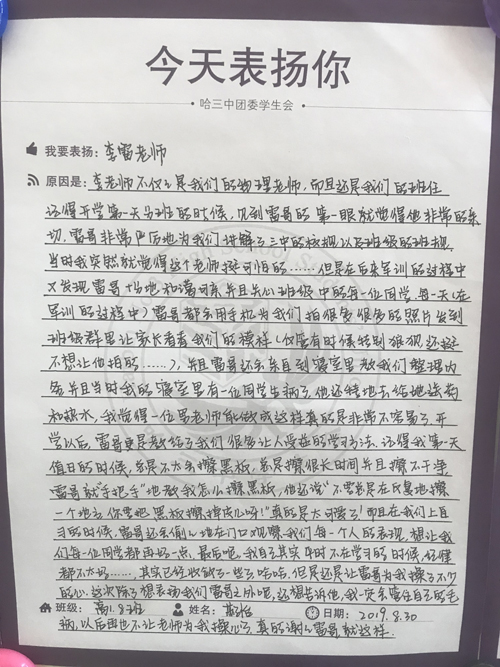 今天表扬你
·哈三中团委学生会·
我要表扬:李雷老师
原因是:李老师不仅是我们的物理老师,而且还是我们的班任
还记得开学第一天分班的时候,见到雷哥的第一眼就觉得他非常的亲
切,雷哥非常严厉地为我们讲解了三中的校规以及班级的班规,
当时我突然就觉得这个老师挺可怕的……但是在后来军训的过程中
又发现雷哥 地和蔼可亲并且关心班级中的每一位同学,每一天(在
军训的过程中)雷哥都会用手机为我们拍很多很多的照片发到
班级群里让家长看看我们的模样(仅管有时候特别狼狈还挺
不想让他拍的……),并且雷哥还会亲自到寝室里教我们整理内
务并且当时我的寝室里有一位同学生病了他还特地去给她送药
和热水,我觉得一位男老师能做成这样真的是非常不容易了,开
学以后,雷哥更是教给了我们很多让人受益的学习方法,还记得我第一天
值日的时候,总是不太会擦黑板,总是擦很长时间并且擦不干净,
雷哥就“手把手”地教我怎么擦黑板,他还说“不要总是在反复地擦
一个地方你要把黑板擦掉皮儿吗!”真的是太可爱了!而且在我们上自
习的时候,雷哥还会偷偷地在门口观察我们每一个人的表现,想让我
们每一位同学都再好一点,最后呢,我自己其实平时不在学习的时候,好像
都不太好……,其实已经收敛了一些了哈哈,但是还是让雷哥为我操了不少
的心,这次除了想表扬我们雷哥之外呢,还想告诉他,我一定会管住自己的毛
班级:高一、8班 姓名: 日期:2019.8.30
病,以后再也不让老师为我操心了,真的谢谢雷哥,就这样.